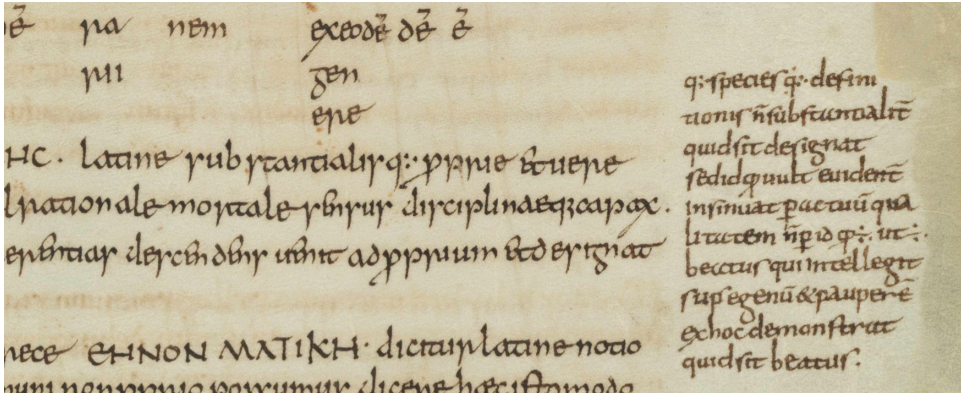 ria nem exeodē dē ē
rii gen
ere
HC. latine substantialis q: proprie & uere
lrationale mortale sensus disciplinaeq; capax.
erentias descendens uenit ad proprium & designat
ENNONMATIKH. dicitur latine notio
num non proprio possumus dicere hoc isto modo
q: species q: defini
tionis n̄ substantialit̄
quid sit designat
sed id quod uult euident̄
insinuat p actuū qua
litatem n̄ p id q: ut:
beatus qui intellegit
sup egenū & pauperē
ex hoc demonstrat
quid sit beatus.